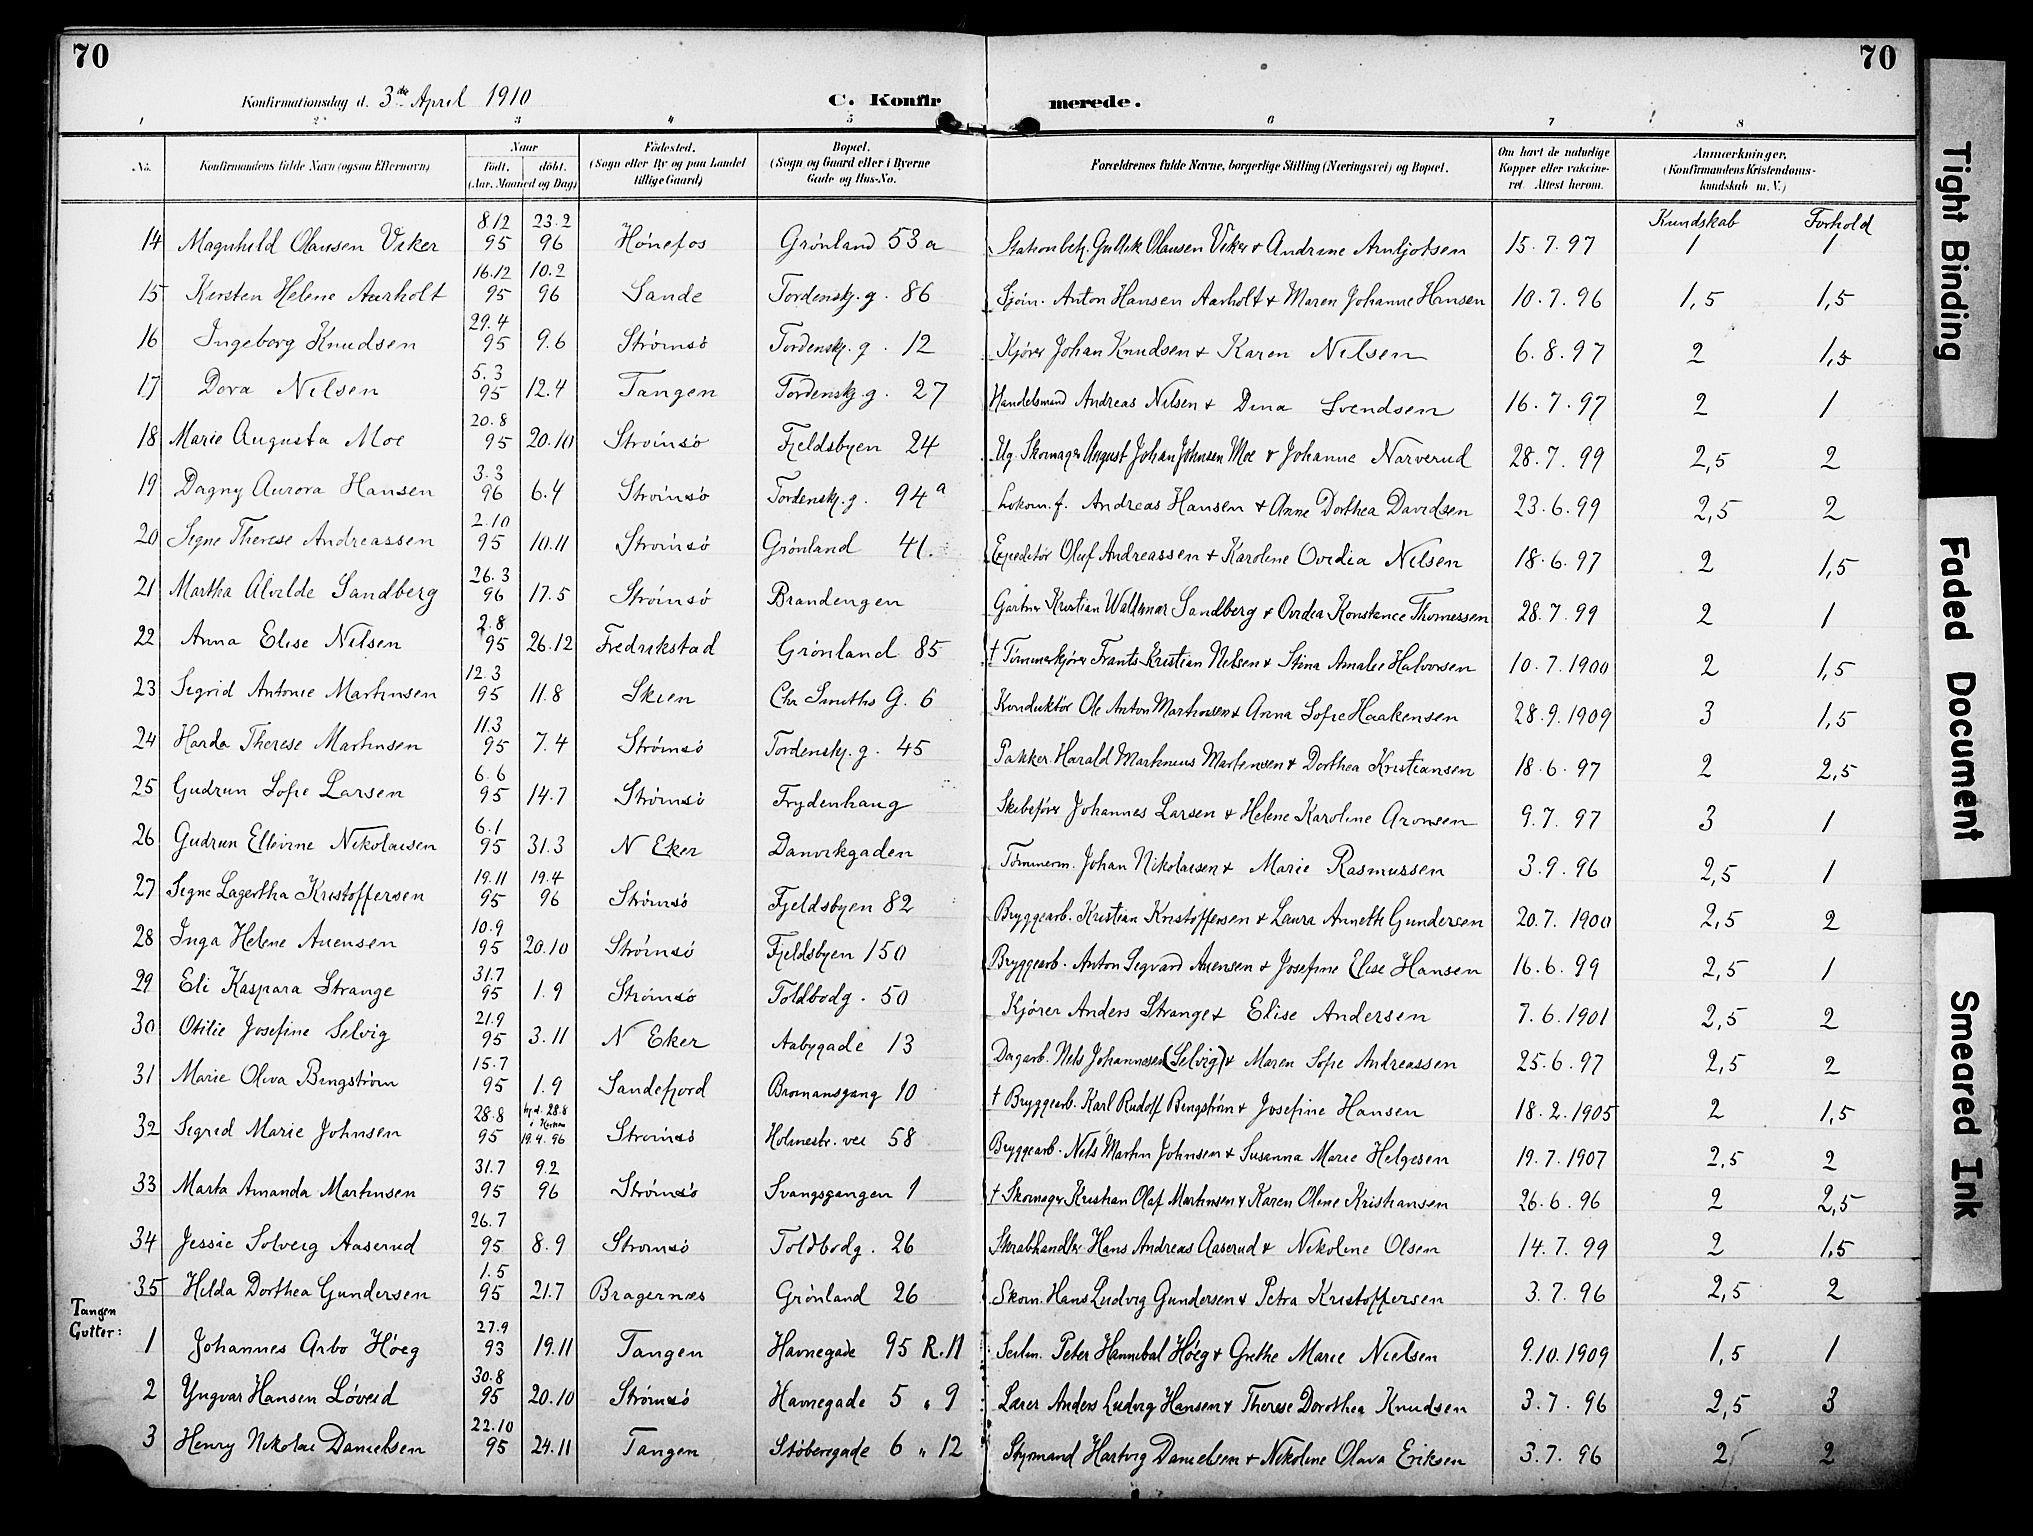 70
70
Konfirmationsdag d. 3die April 1910
C. Konfirmerede.
1 2 3 4 5 6 7 8
No.
Konfirmandens fulde Navn (ogsaa Efternavn)
Naar
født. døbt.
(Aar, Maaned og Dag)
Fødested.
(Sogn eller By og paa Landet
tillige Gaard)
Bopæl.
(Sogn og Gaard eller i Byerne
Gade og Hus-No.
Forældrenes fulde Navne, borgerlige Stilling (Næringsvei) og Bopæl.
Om havt de naturlige
Kopper eller vakcine-
ret. Attest herom.
Anmærkninger.
(Konfirmandens Kristendoms-
kundskab m. V.)
Kundskab Forhold
14 Magnhild Olausen Viker 8/12 95 23.2 96 Hønefos Grønland 53a Stationbetj. Gullik Olausen Viker + Andrine Arnljotsen 15.7.97 1 1
15 Kirsten Helene Aarholt 16.12 95 10.2 96 Sande Tordenskj. g. 86 Sjøm. Anton Hansen Aarholt + Maren Johanne Hansen 10.7.96 1,5 1,5
16 Ingeborg Knudsen 29.4 95 9.6 Strømsø Tordenskj. g. 12 Kjører Johan Knudsen + Karen Nilsen 6.8.97 2 1,5
17 Dora Nilsen 5.3 95 12.4 Tangen Tordenskj. g. 27 Handelsmand Andreas Nilsen + Dina Svendsen 16.7.97 2 1
18 Marie Augusta Moe 20.8 95 20.10 Strømsø Fjeldsbyen 24 Ug. Skomager August Johan Johnsen Moe + Johanne Narverud 28.7.99 2,5 2
19 Dagny Aurora Hansen 3.3 96 6.4 Strømsø Tordenskj. g. 94a Lokom. f. Andreas Hansen + Anne Dorthea Davidsen 23.6.99 2,5 2
20 Signe Therese Andreassen 2.10 95 10.11 Strømsø Grønland 41. Expeditør Oluf Andreassen + Karoline Ovidia Nilsen 18.6.97 2 1,5
21 Martha Alvilde Sandberg 26.3 96 17.5 Strømsø Brandengen Gartner Kristian Waldemar Sandberg + Ovidia Konstance Thomessen 28.7.99 2 1
22 Anna Elise Nilsen 2.8 95 26.12 Fredrikstad Grønland 85 † Tømmerkjører Frants Kristian Nilsen + Stina Amalie Halvorsen 10.7.1900 2 1,5
23 Sigrid Antonie Martinsen 12.3 95 11.8 Skien Chr Smiths G. 6 Konduktør Ole Anton Martinsen + Anna Sofie Haakensen 28.9.1909 3 1,5
24 Harda Therese Martinsen 11.3 95 7.4 Strømsø Tordenskj. g. 45 Pakker Harald Martinius Martinsen + Dorthea Kristiansen 18.6.97 2 2,5
25 Gudrun Sofie Larsen 6.6 95 14.7 Strømsø Frydenhaug Skibsfører Johannes Larsen + Helene Karoline Aronsen 9.7.97 3 1
26 Gudrun Ellevine Nikolaisen 6.1 95 31.3 N Eker Danvikgaden Tømmerm. Johan Nikolaisen + Marie Rasmussen 3.9.96 2,5 1
27 Signe Lagertha Kristoffersen 19.11 95 19.4 96 Strømsø Fjeldsbyen 82 Bryggearb. Kristian Kristoffersen + Laura Annette Gundersen 20.7.1900 2,5 2
28 Inga Helene Auensen 10.9 95 20.10 Strømsø Fjeldsbyen 150 Bryggearb. Anton Sigvard Auensen + Josefine Elise Hansen 16.6.99 2,5 1
29 Eli Kaspara Strange 31.7 95 1.9 Strømsø Toldbodg. 50 Kjører Anders Strange + Elise Andersen 7.6.1901 2,5 2
30 Otilie Josefine Selvig 21.9 95 3.11 N Eker Aabygade 13 Dagarb. Nils Johannesen (Selvig) + Maren Sofie Andreassen 25.6.97 2,5 2
31 Marie Oliva Bingstrøm 15.7 95 1.9 Sandefjord Bromansgang 10 † Bryggearb. Karl Rudolf Bingstrøm + Josefine Hansen 18.2.1905 2 1,5
32 Sigrid Marie Johnsen 28.8 95 hjd. 28.8 19.4.96 Strømsø Holmestr. vei 58 Bryggearb. Nils Martin Johnsen + Susanna Marie Helgesen 19.7.1907 2,5 2
33 Marta Amanda Martinsen 31.7 95 9.2 96 Strømsø Svangsgangen 1 † Skomager Kristian Olaf Martinsen + Karen Oline Kristiansen 26.6.96 2 2,5
34 Jessie Solveig Aaserud 26.7 95 8.9 Strømsø Toldbodg. 26 Skrabhandler Hans Andreas Aaserud + Nikoline Olsen 14.7.99 2 1,5
35 Hilda Dorthea Gundersen 1.5 95 21.7 Bragernæs Grønland 26 Skom. Hans Ludvig Gundersen + Petra Kristoffersen 3.7.96 2,5 2
Tangen
Gutter:
1 Johannes Arbo Høeg 27.9 93 19.11 Tangen Havnegade 95 R. 11 Seilm. Peter Hannibal Høeg + Grethe Marie Nielsen 9.10.1909 1,5 1
2 Yngvar Hansen Løveid 30.8 95 20.10 Strømsø Havnegade 5 " 9 Lærer Anders Ludvig Hansen + Therese Dorothea Knudsen 3.7.96 2,5 3
3 Henry Nikolai Danielsen 22.10 95 24.11 Tangen Støberegade 6 " 12 Styrmand Hartvig Danielsen + Nikoline Olava Eriksen 3.7.96 2 2
Tight Binding
Faded Document
Smeared Ink